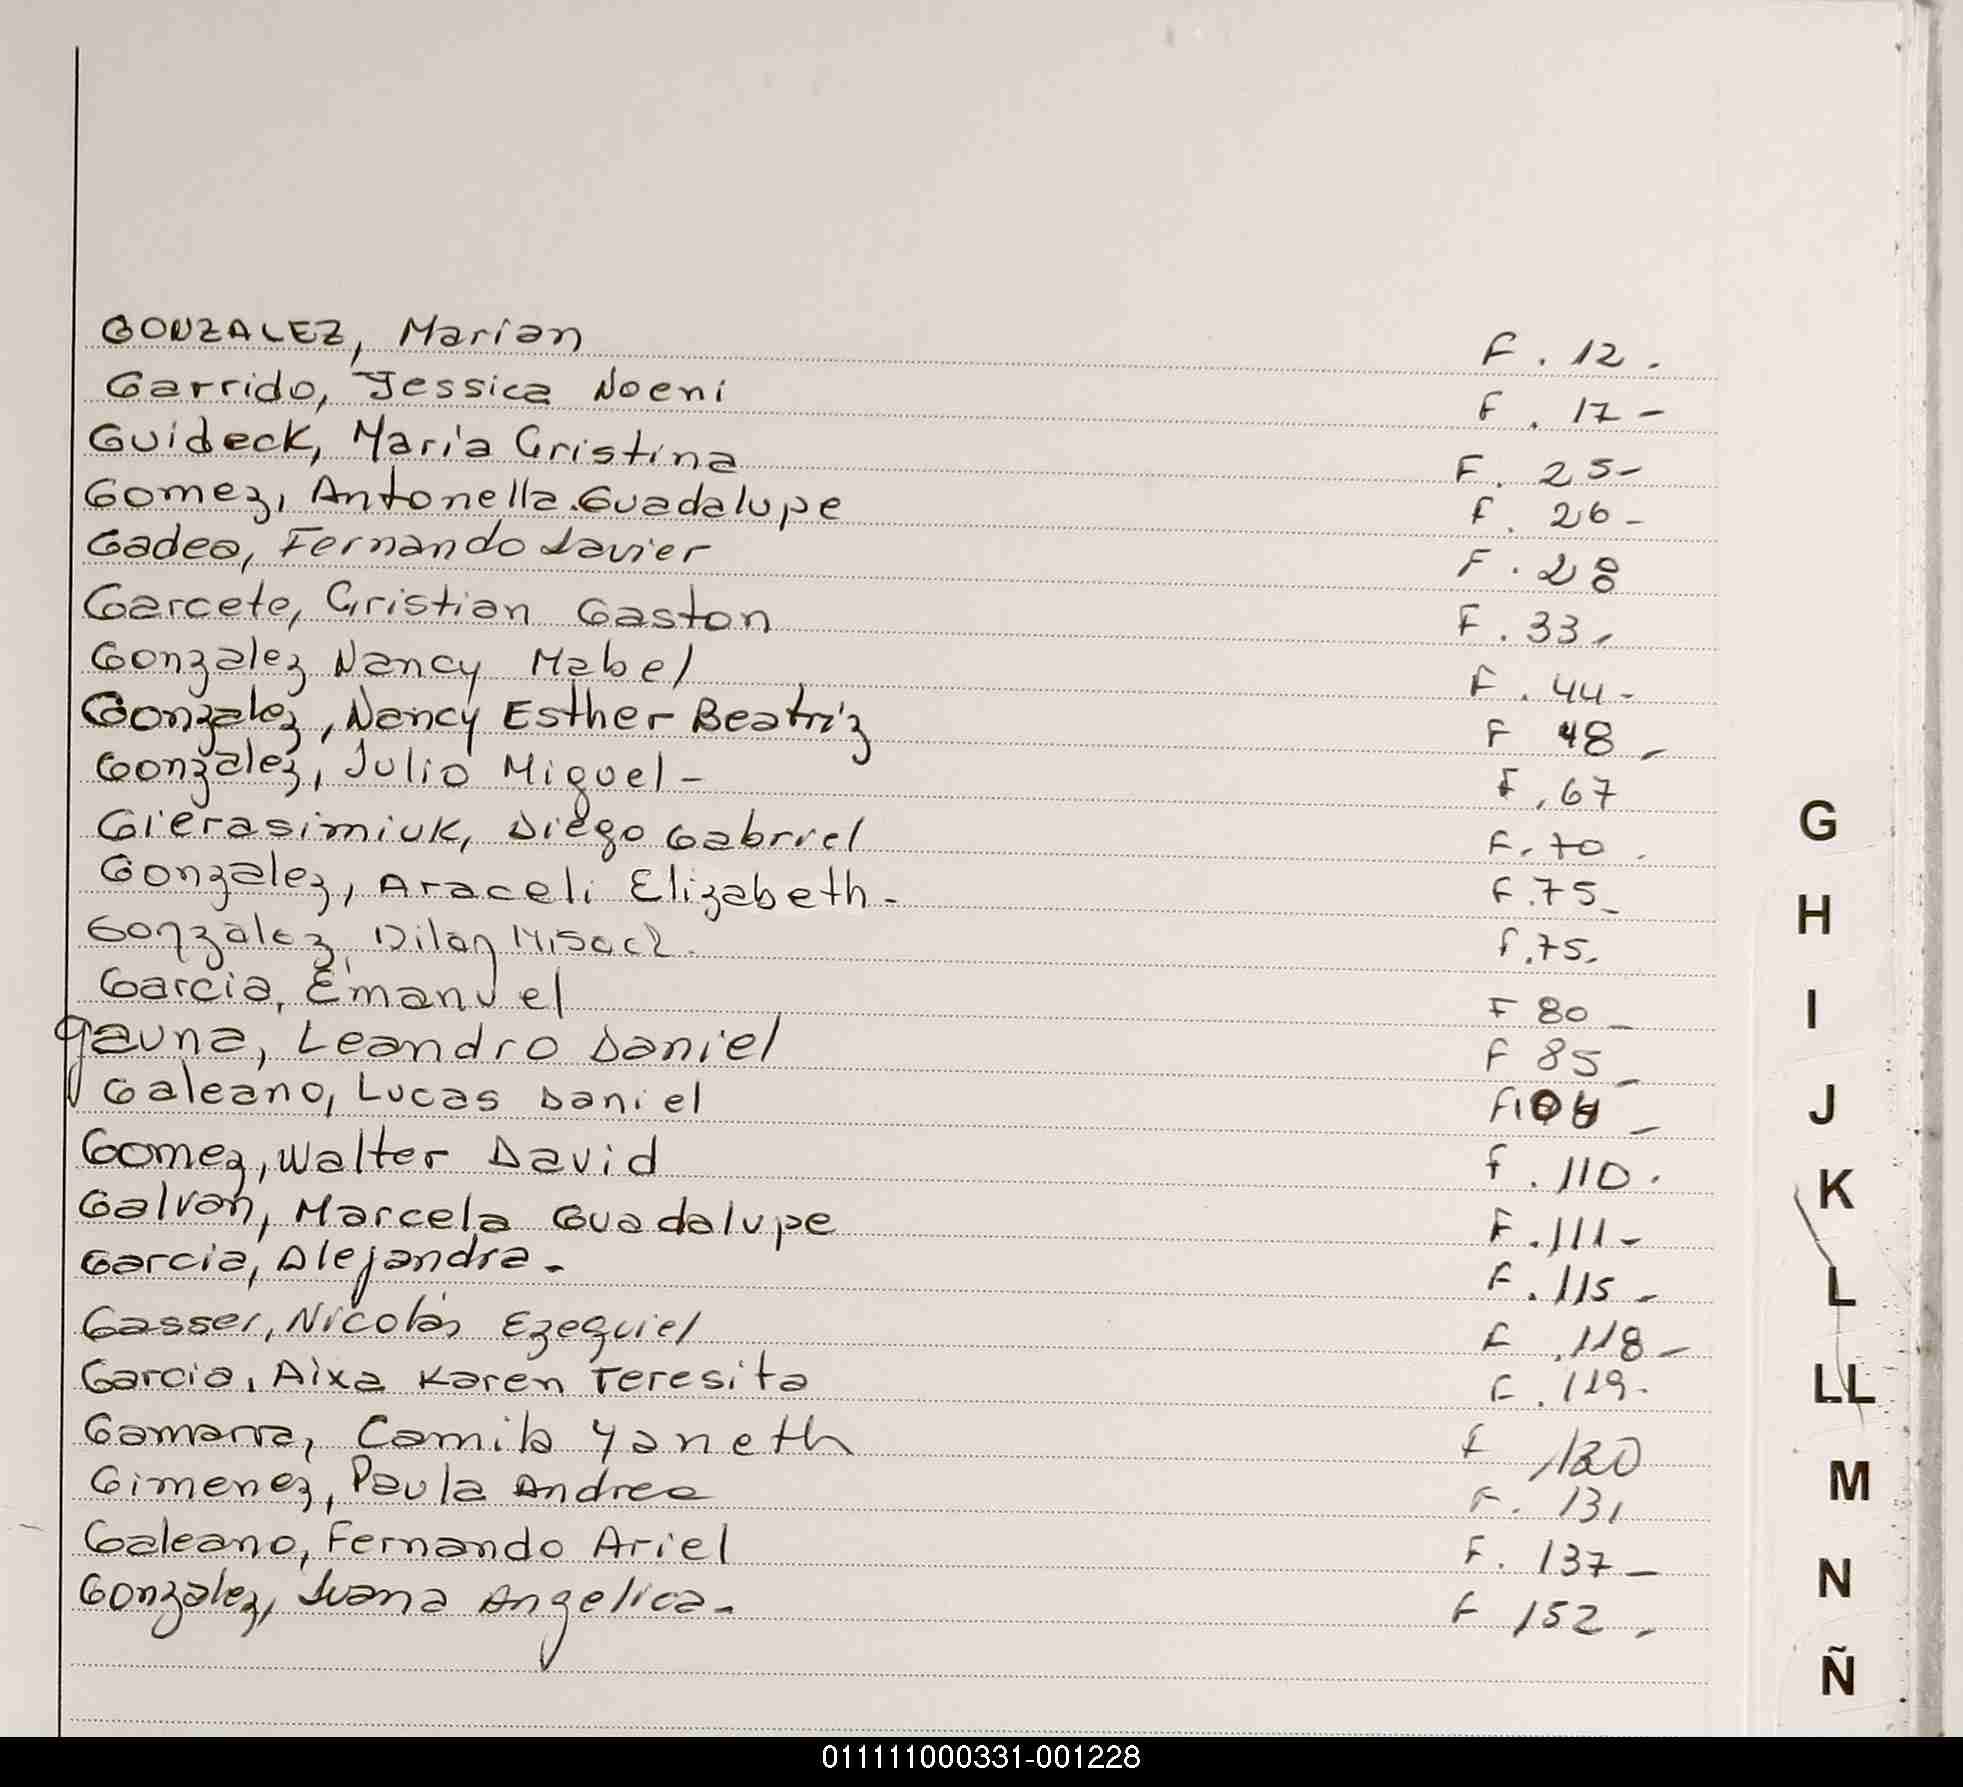 GONZALEZ, Marian F. 12.
Garrido, Jessica Noeni F. 17-
Guideck, Maria Cristina F. 25-
Gomez, Antonella Guadalupe F. 26-
Gadea, Fernando Javier F. 28
Garcete, Cristian Gaston F. 33-
Gonzalez Nancy Mabel F. 44-
Gonzalez, Nancy Esther Beatriz F 48-
Gonzalez, Julio Miguel- F. 67
Gierasimiuk, Diego Gabriel F. 70.
Gonzalez, Araceli Elizabeth- F. 75-
Gonzalez, Dilan Misael. F. 75.
Garcia, Emanuel F 80-
Gauna, Leandro Daniel F 85-
Galeano, Lucas Daniel
Gomez, Walter David F. 110.
Galvan, Marcela Guadalupe F. 111-
Garcia, Alejandra. F. 115-
Gasser, Nicolás Ezequiel F. 118-
Garcia, Aixa Karen Teresita F. 119.
Gamarra, Camila Yaneth F
Gimenez, Paula Andrea F. 131
Galeano, Fernando Ariel F. 137-
Gonzalez, Juana Angelica- F 152-
G
H
I
J
K
L
LL
M
N
Ñ
011111000331-001228